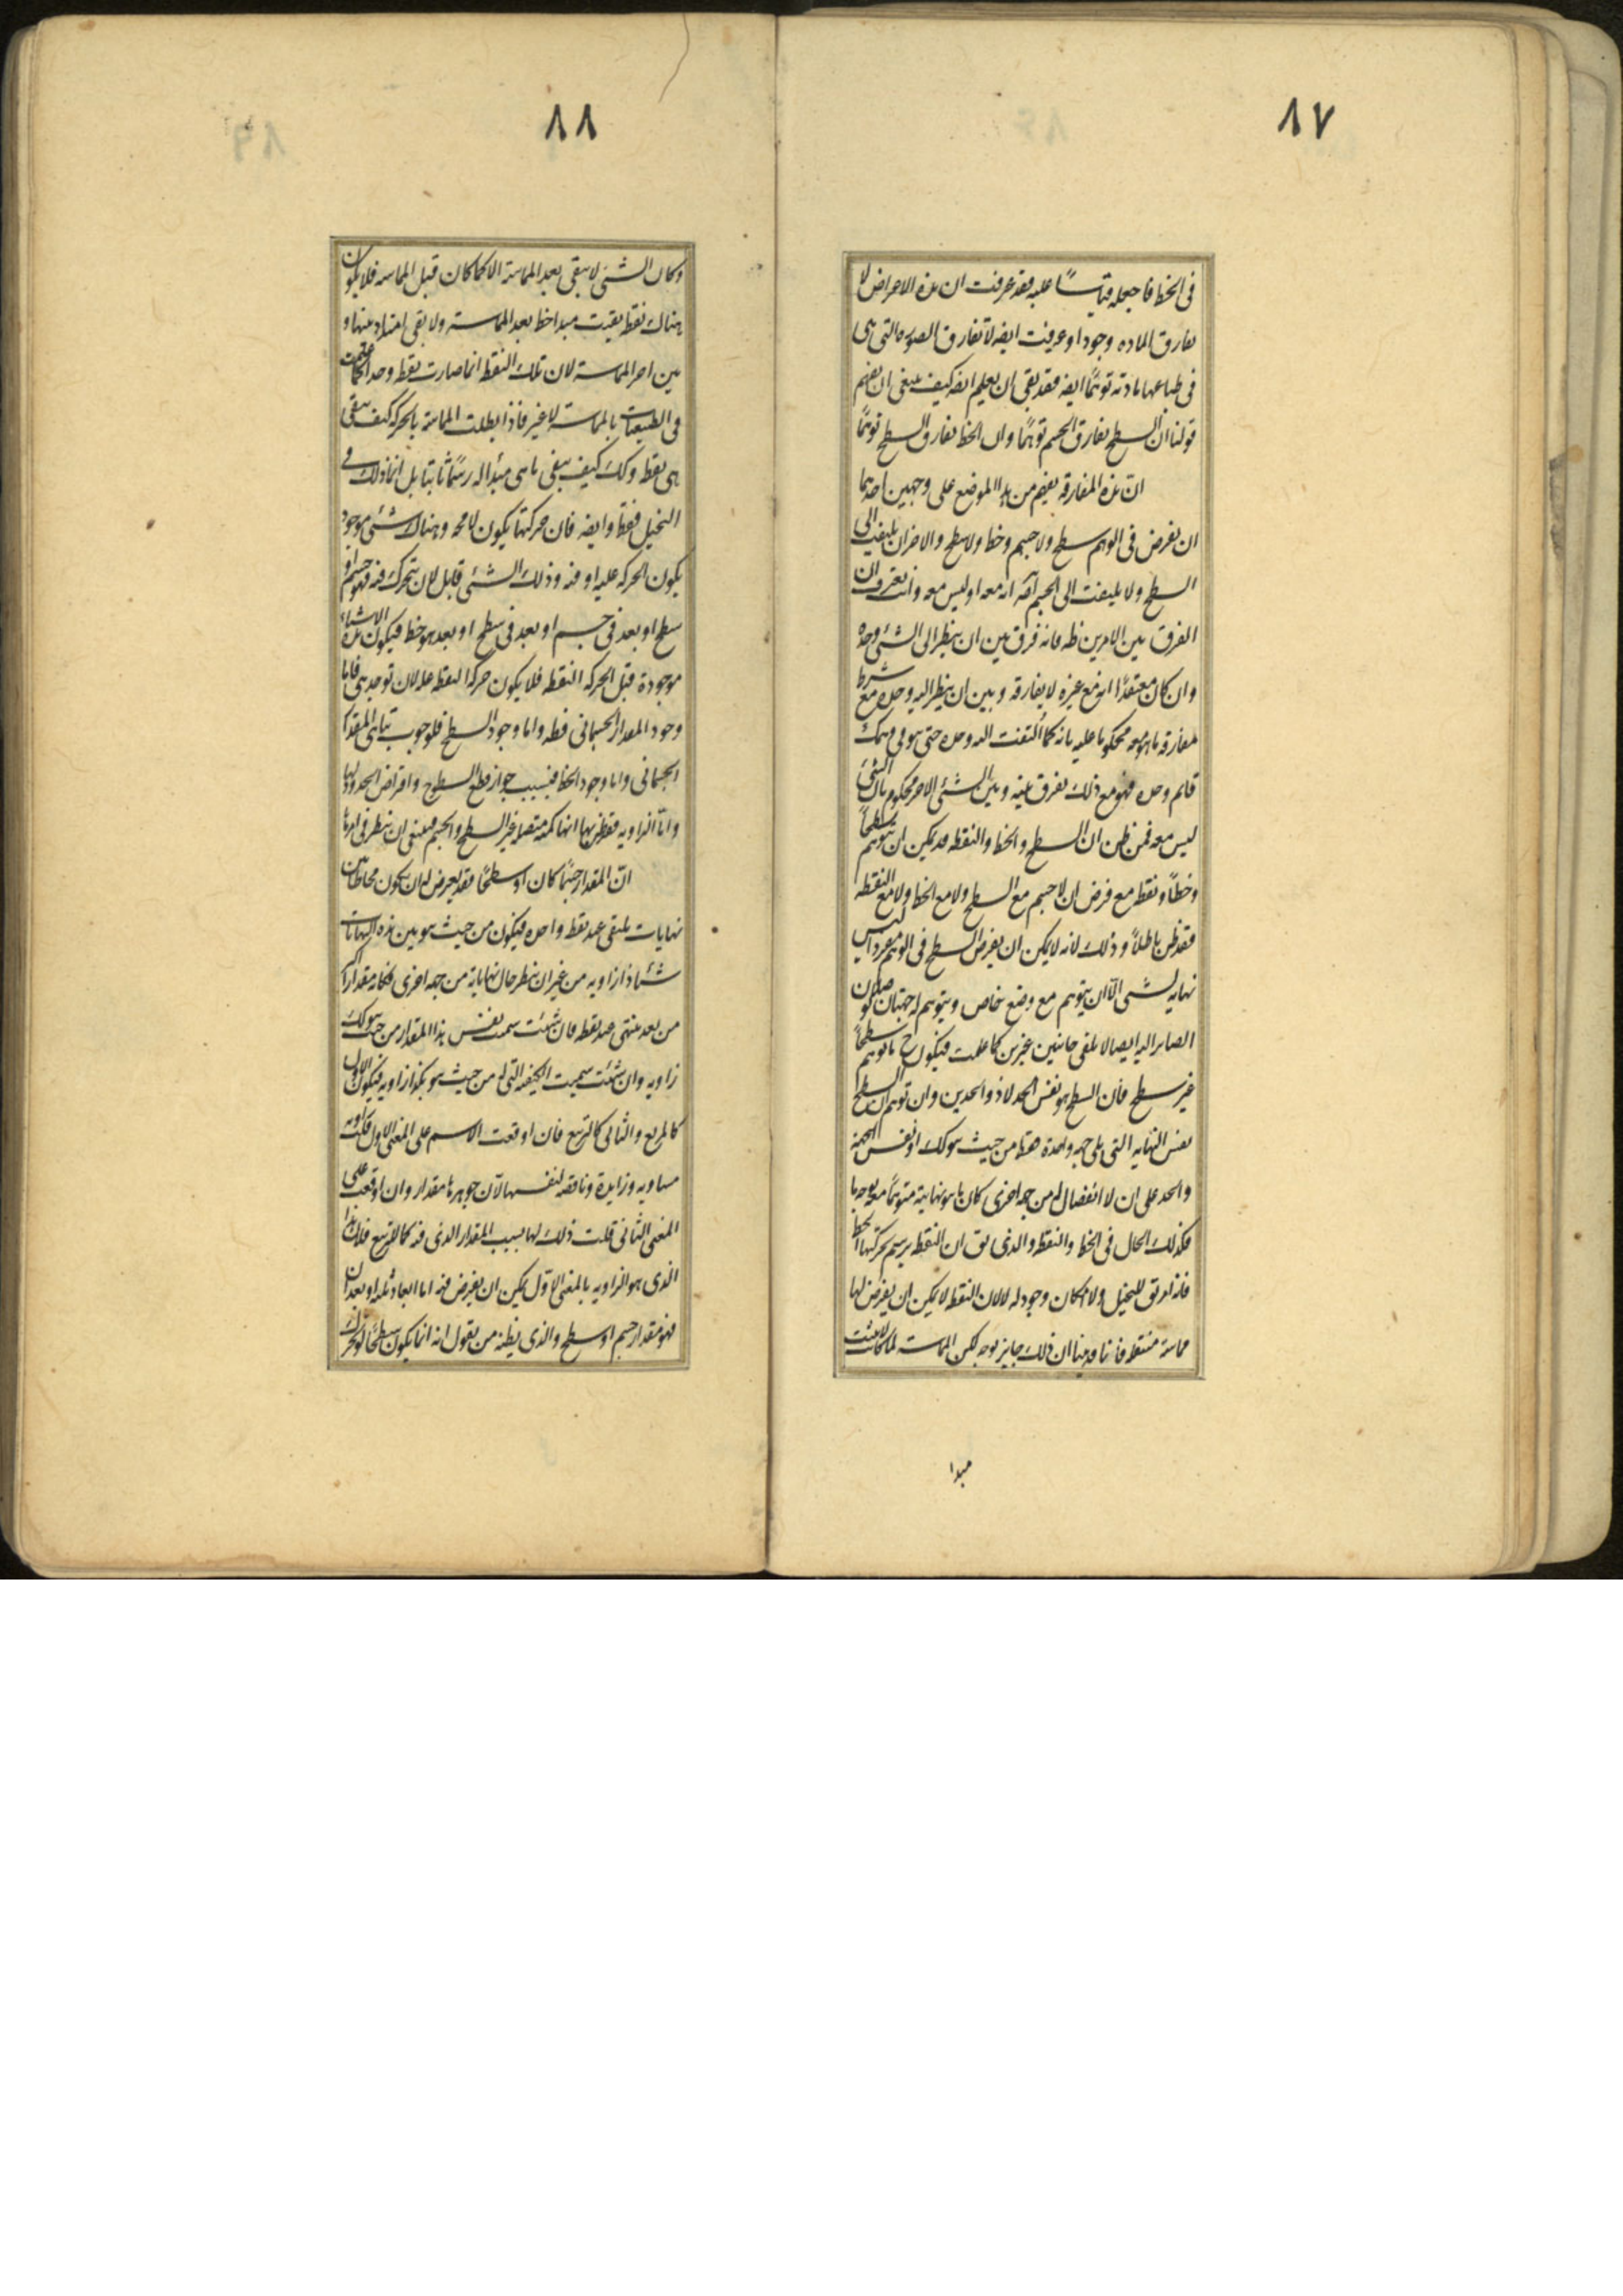 ٨٧
فى الخط فاجعله قياسًا عليه فقد عرفت ان هذه الاعراض لا
تفارق الماده وجودا وعرفت ايضه لا تفارق الصوره التى هى
فى طباعها مادته توهّمًا ايضه فقد بقى ان يعلم انه كيف ينبغى ان نفهم
قولنا ان السطح يفارق الجسم توهّمًا وان الخط يفارق السطح توهّمًا
انّ هذه المفارقه يفهم من هذا الموضع على وجهين احدهما
ان نفرض فى الوهم سطح ولا جسم وخط ولا سطح والاخر ان يلتفت الى
السطح ولا يلتفت الى الجسم انه معه او ليس معه وانت تعرف ان
الفرق بين الامرين ظه فانه فرق بين ان ينظر الى الشئ وحده
وان كان معتقدًا انه مع غيره لا يفارقه وبين ان ينظر اليه وحده مع شرط
مفارقه ما هو معه محكوما عليه بانه كما التفت اليه وحده حتى هو فى وهمك
قايم وحده فهو مع ذلك تفرق بينه وبين الشئ الاخر محكوم بان الشئ
ليس معه فمن ظن ان السطح والخط والنقطه قد يمكن ان يتوهم سطحًا
وخطًا ونقطه مع فرض ان لا جسم مع السطح ولا مع الخط ولا مع النقطه
فقد ظن باطلًا وذلك لانه لا يمكن ان يفرض السطح فى الوهم مفردا ليس
نهايه لشى الّا ان يتوهم مع وضع خاص ويتوهم له جهتان
الصاير اليه ايصالا يلقى جانبين غيرين كما علمت فيكون ح ما توهم سطحًا
غير سطح فان السطح هو نفس الحد لا ذو الحدين وان توهم ان السطح
نفس النهايه التى يلى جهه واحدة فقط من حيث هو كك او نفس الجهه
والحد على ان لا انفصال له من جهه اخرى كان ما هو نهايته متوهّمًا معه بوجه ما
فكذلك الحال فى الخط والنقطه والذى يق ان النقطه يرسم بحركتها الخط
فانه امر يق للتخيل ولا امكان وجود له لا لان النقطه لا يمكن ان يفرض لها
مماسة منتقله فانا قد بينا ان ذلك جايز بوجه لكن المماسه لما كانت لا تثبت
مبدا
٨٨
وكان الشئ لا يبقى بعد المماسة الا كما كان قبل المماسه فلا يكون
هناك نقطه بقيت مبدا خط بعد المماسته ولا يبقى امتداد بينها و
بين اجزاء المماسته لان تلك النقطه انما صارت نقطه واحدة كما علمت
فى الطبيعيات بالمماسته لا غير فاذا بطلت المماسة بالحركه كيف يبقى
هى نقطه وكك كيف يبقى ما هى مبدا له رسمًا ثابتا بل انما ذلك فى
التخيل فقط وايضه فان حركتها يكون لا محه وهناك شئ موجود
يكون الحركه عليه او فيه وذلك الشئ قابل لان يتحرك فيه فهو جسم او
سطح او بعد فى جسم او بعد فى سطح او بعد هو خط فيكون هذه الاشياء
موجودة قبل الحركه النقطه فلا يكون حركه النقطه عله لان توجد هى فاما
وجود المقدار الجسمانى فظه واما وجود السطح فلوجوب تناهى المقدار
الجسمانى واما وجود الخط فبسبب جواز قطع السطوح وافتراض الحدود لها
وامّا الزاويه فقد ظن بها انها كميه متصله غير السطح والجسم فينبغى ان ينظر فى امرها
انّ المقدار جسمًا كان او سطحًا فقد يعرض له ان يكون محاطا بين
نهايات يلتقى عند نقطه واحده فيكون من حيث هو بين هذه النهايات
شئا ذا زاويه من غير ان ينظر حال نهاياته من جهه اخرى فكانه مقدار اكثر
من بعد ينتهى عند نقطه فان شئت سميت نفس هذا المقدار من حيث هو كك
زاويه وان شئت سميت الكيفيه التى له من حيث هو هكذا زاويه فيكون الاول
كالمربع والثانى كالتربيع فان اوقعت الاسم على المعنى الاول قلت زاويه
مساويه وزايدة وناقصه لنفسها لان جوهرها مقدار وان اوقعت على
المعنى الثانى قلت ذلك لها بسبب المقدار الذى فيه كما للتربيع فلان هذا
الذى هو الزاويه بالمعنى الاوّل يمكن ان يفرض فيه اما ابعاد ثلثه او بعدان
فهو مقدار جسم او سطح والذى يظنه من يقول انه انما يكون سطحًا لو تحرك